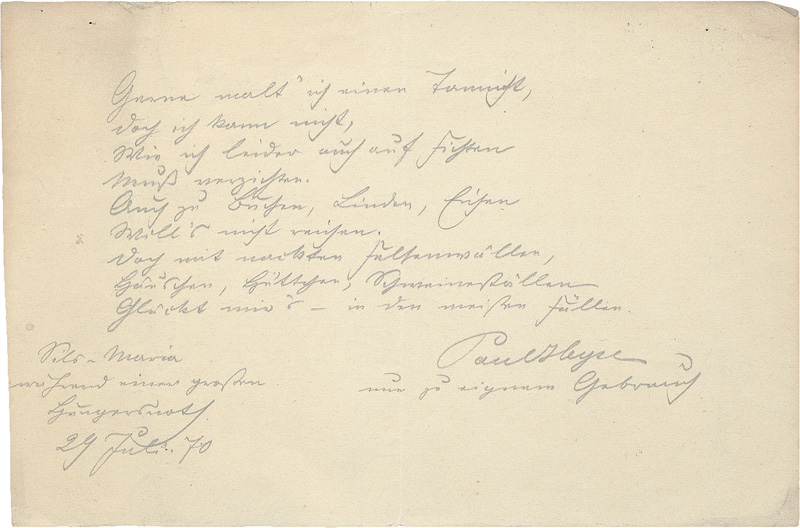 Gerne malt' ich einen Tannicht,
Doch ich kann nicht,
Wie ich leider auch auf Fichten
Muß verzichten.
Auch zu Buchen, Linden, Eichen
Will's nicht reichen.
Doch mit nackten Felsenwällen,
Häuschen, Hüttchen, Schweineställen
Glückt mir's – in den meisten Fällen.
Paul Heyse
nur zu eignem Gebrauch
Sils-Maria
während einer großen
Hungersnoth.
29 Juli. 70